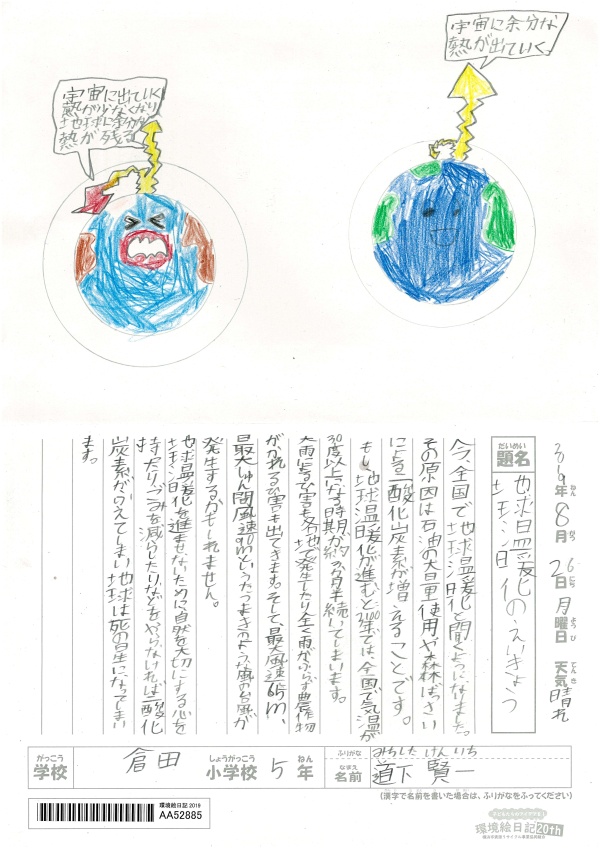 宇宙に余分な
熱が出ていく。
宇宙に出ていく
熱が少なくなり
地球に余分な
熱が残る
2019年 8月 26日 月曜日 天気 晴れ
ねん がつ にち ようび てんき
だいめい
題名
地球温暖化のえいきょう
今、全国で地球温暖化と聞くようになりました。
その原因は石油の大量使用や森林ばっさい
による二酸化炭素が増えることです。
もし、地球温暖化が進むと2100年では、全国で気温が
30度以上になる時期が約3か月半続いてしまいます。
大雨によるひ害も各地で発生したり全く雨がふらず農作物
がかれるひ害も出てきます。そして、最大風速65m、
最大しゅん間風速90mというたつまきのような風の台風が
発生するかもしれません。
地球温暖化を進ませないために自然を大切にする心を
持たりごみを減らしたりなどをやらなければ二酸化
炭素がふえてしまい地球は死の星になってしまい
ます。
がっこう
学校
倉田
しょうがっこう
小学校
5
ねん
年
ふりがな
みちした けんいち
なまえ
名前
道下 賢一
(漢字で名前を書いた場合は、ふりがなをふってください)
環境絵日記 2019
AA52885
環境絵日記 20th